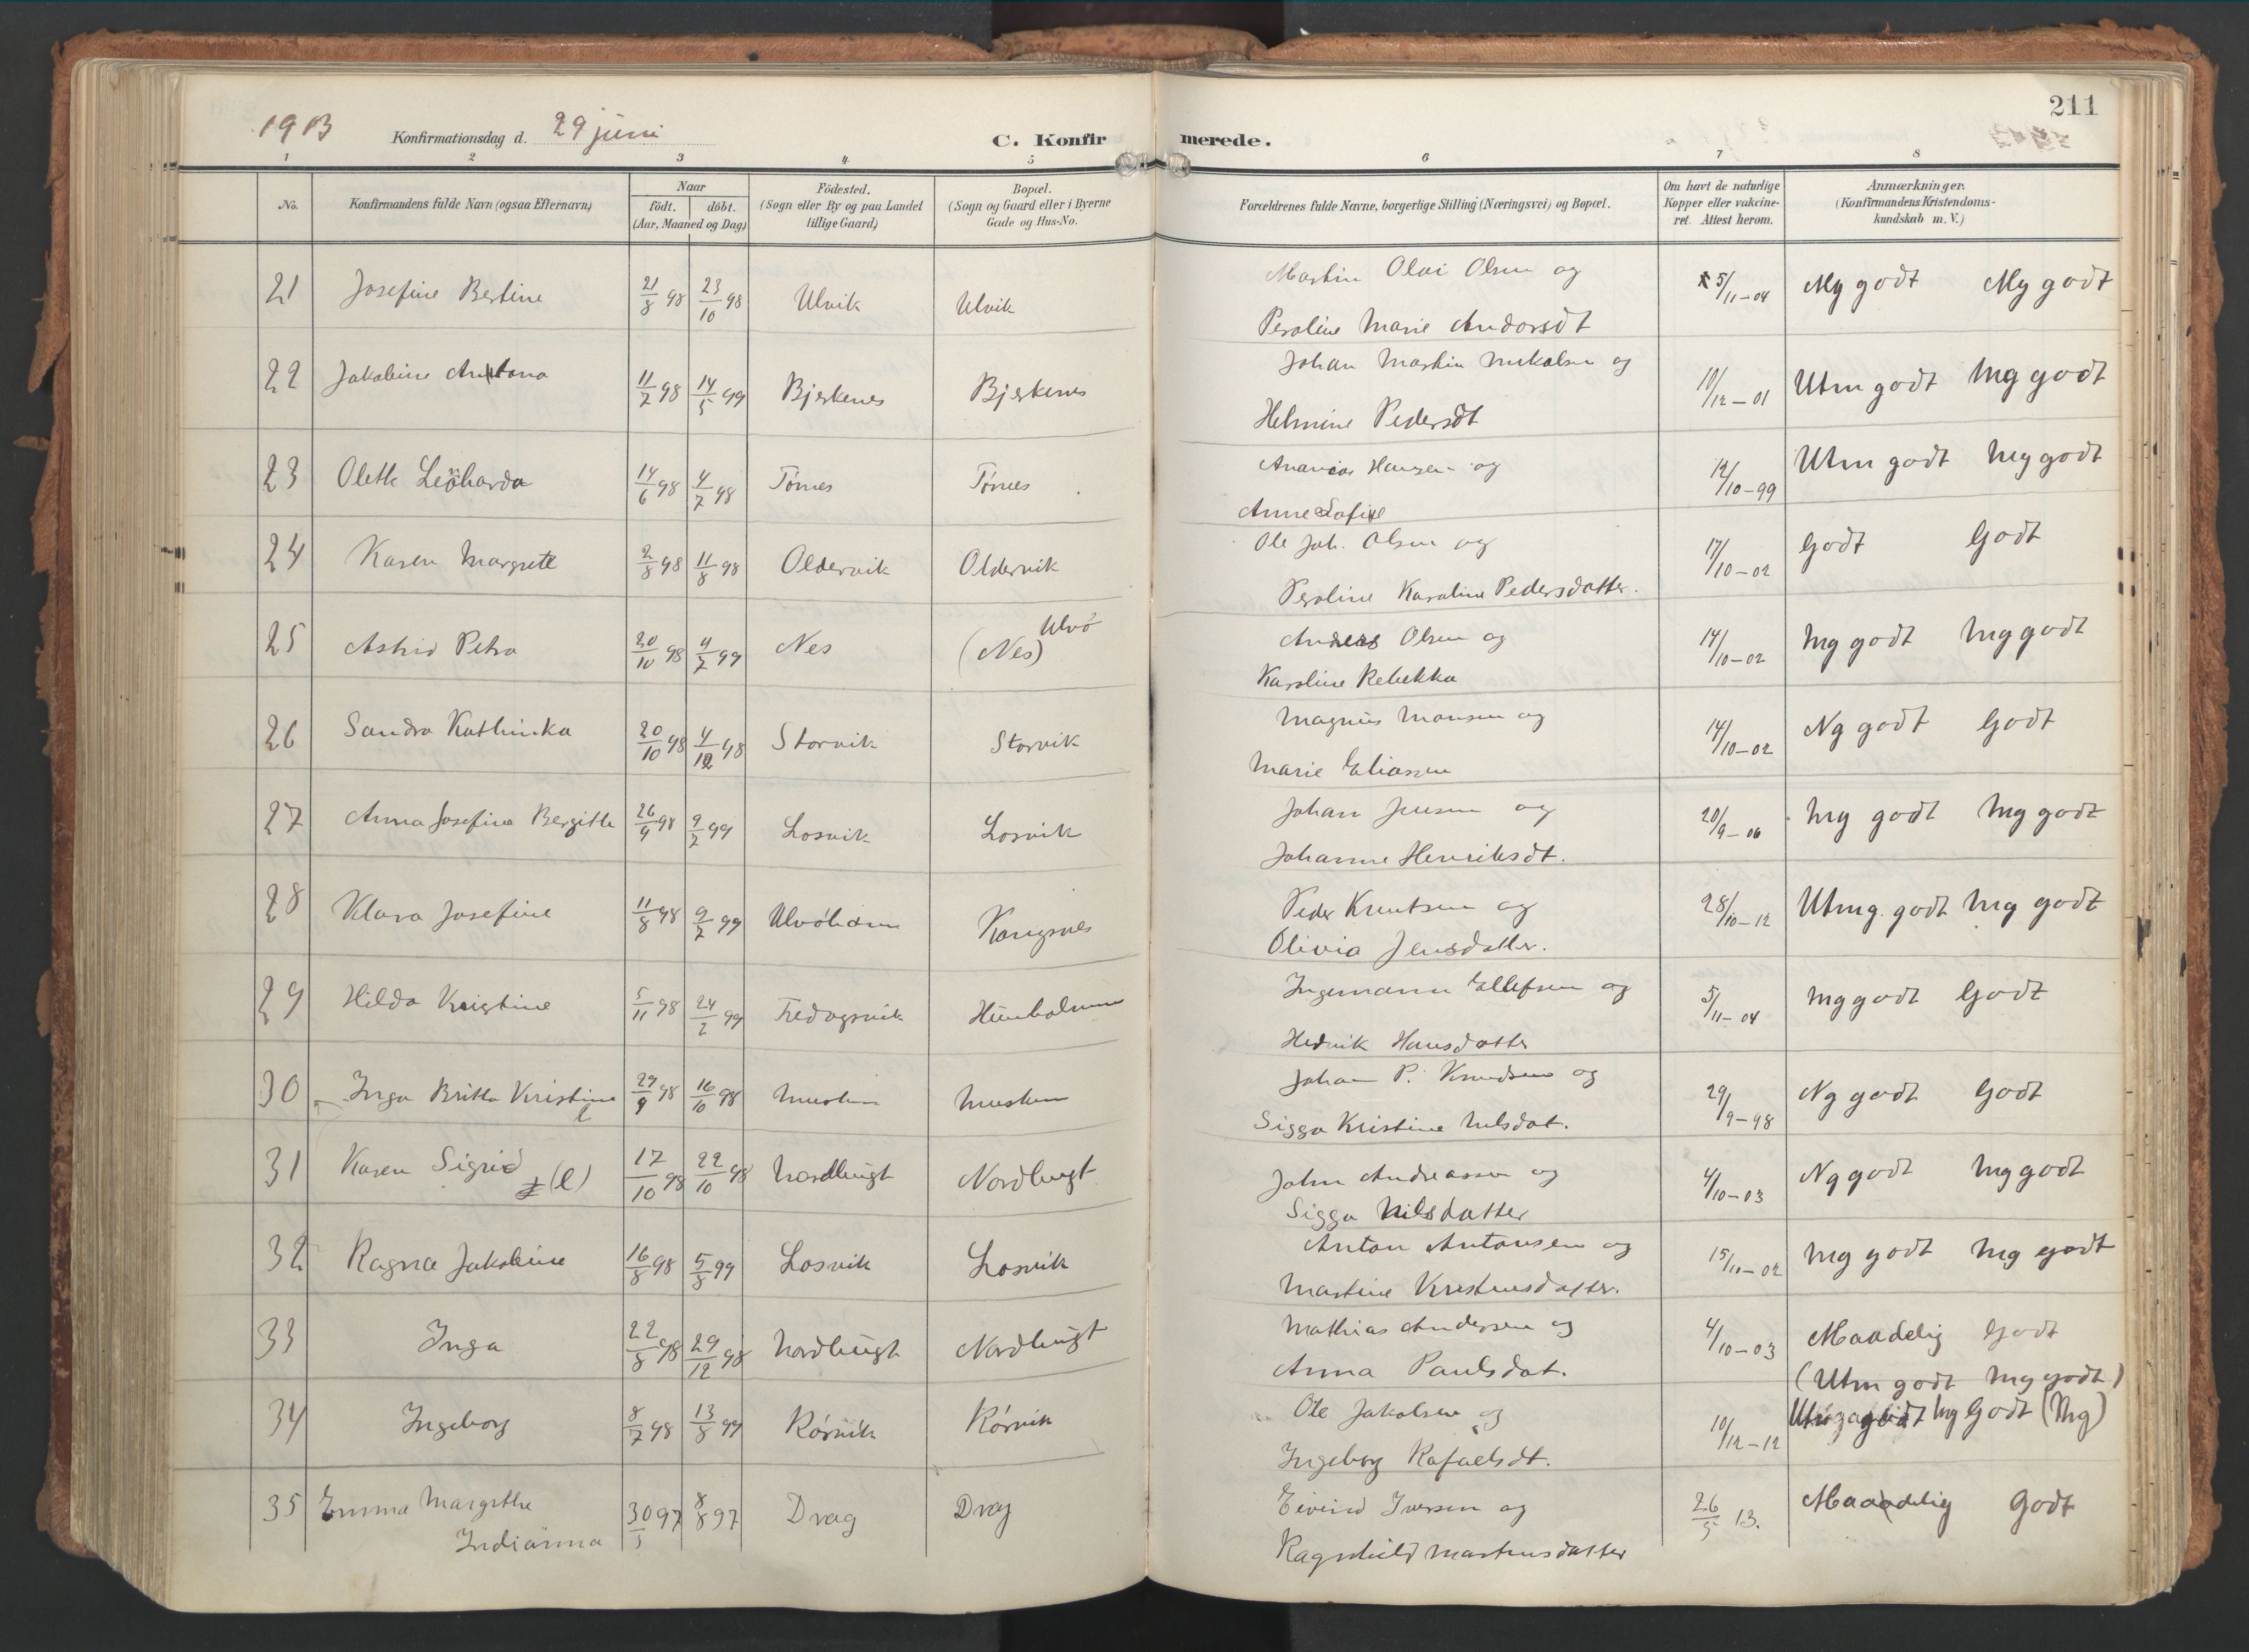 211
1913 Konfirmationsdag d. 29 juni C. Konfirmerede.
1 2 3 4 5 6 7 8
No.
Konfirmandens fulde Navn (ogsaa Efternavn)
Naar
födt. döbt.
(Aar, Maaned og Dag)
Födested.
(Sogn eller By og paa Landet
tillige Gaard)
Bopæl.
(Sogn og Gaard eller i Byerne
Gade og Hus-No.
Forældrenes fulde Navne, borgerlige Stilling (Næringsvei) og Bopæl.
Om havt de naturlige
Kopper eller vakcine-
ret. Attest herom.
Anmærkninger.
(Konfirmandens Kristendoms-
kundskab m. V.)
21 Josefine Bertine 21/8 98 23/10 98 Ulvik Ulvik Martin Olai Olsen og 5/11-04 Mg godt Mg godt
Peroline Marie Andorsdt
22 Jakobine Antona 11/7 98 14/5 99 Bjerkenes Bjerkenes Johan Martin Mikalsen og 10/12-01 Utm godt Mg godt
Helmine Pedersdt
23 Olette Leonharda 14/6 98 4/7 98 Tømes Tømes Ananias Hansen og 12/10-99 Utm godt Mg godt
Anne Sofie
24 Karen Margrete 2/8 98 11/8 98 Oldervik Oldervik Ole Joh. Olsen og 17/10-02 Godt Godt
Peroline Karoline Pedersdatter.
25 Astrid Petra 20/10 98 4/7 99 Nes (Nes) Ulvö Anders Olsen og 14/10-02 Mg godt Mg godt
Karoline Rebekka
26 Sandra Kathinka 20/10 98 4/12 98 Storvik Storvik Magnus Monsen og 14/10-02 Ng godt Godt
Marie Eliassen
27 Anna Josefine Bergitte 26/9 98 9/7 99 Losvik Losvik Johan Jensen og 20/9-06 Mg godt Mg godt
Johanne Henriksdt.
28 Klara Josefine 11/8 98 9/7 99 Ulvöhamn Kongsnes Peder Knutsen og 28/10-12 Utmg. godt Mg godt
Olivia Jensdatter.
29 Hilda Kristine 5/11 98 24/2 99 Fredagsvik Ingemann Ellefsen og 5/11-04 Mg godt Godt
Hedvik Hansdatter
30 Inga Britta Kristine 29/9 98 16/10 98 Musken Musken Johan P. Knudsen og 29/9-98 Ng godt Godt
Sigga Kristine Nilsdat.
31 Karen Sigrid (l) 17/10 98 22/10 98 Nordbugt Nordbugt John Andreassen og 4/10-03 Ng godt Mg godt
Sigga Nilsdatter
32 Ragna Jakobine 16/8 98 5/8 99 Losvik Losvik Anton Antonsen og 15/11-02 Mg godt Mg godt
Martine Kristensdatter.
33 Inga 22/8 98 29/12 98 Nordbugt Nordbugt Mathias Andersen og 4/10-03 Maadelig Godt
Anna Paulsdat. (Utm godt Mg godt)
34 Ingeborg 8/7 98 13/8 99 Rørvik Rørvik Ole Jakobsen og 10/12-12 Mg Godt (Mg)
Ingeborg Rafaelsdt.
35 Emma Margrethe 30/5 97 8/8 97 Drag Drag Eivind Iversen og 26/5 13. Maadelig Godt
Indianna Ragnhild Martinsdatter